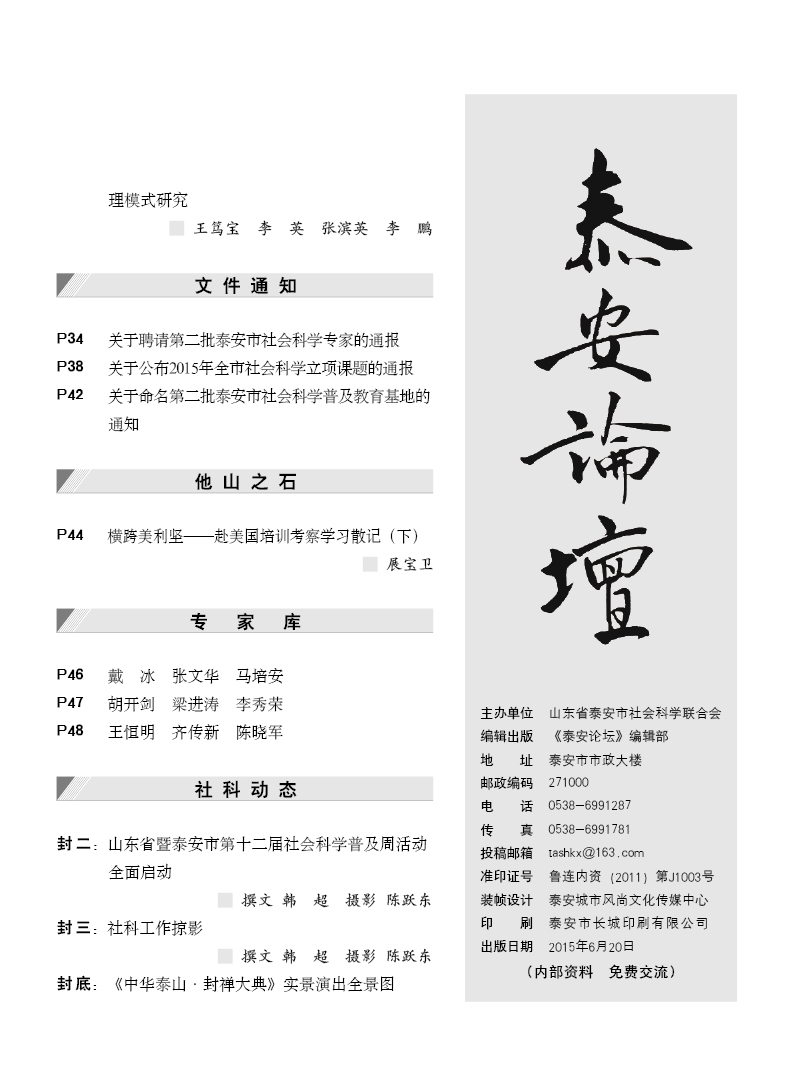 理模式研究
王笃宝 李 英 张滨英 李 鹏
文件通知
P34 关于聘请第二批泰安市社会科学专家的通报
P38 关于公布2015年全市社会科学立项课题的通报
P42 关于命名第二批泰安市社会科学普及教育基地的
通知
他山之石
P44 横跨美利坚——赴美国培训考察学习散记（下）
展宝卫
专 家 库
P46 戴 冰 张文华 马培安
P47 胡开剑 梁进涛 李秀荣
P48 王恒明 齐传新 陈晓军
社科动态
封二：山东省暨泰安市第十二届社会科学普及周活动
全面启动
撰文 韩 超 摄影 陈跃东
封三：社科工作掠影
撰文 韩 超 摄影 陈跃东
封底：《中华泰山·封禅大典》实景演出全景图
泰
安
論
壇
主办单位 山东省泰安市社会科学联合会
编辑出版 《泰安论坛》编辑部
地 址 泰安市市政大楼
邮政编码 271000
电 话 0538-6991287
传 真 0538-6991781
投稿邮箱 tashkx@163.com
准印证号 鲁连内资（2011）第J1003号
装帧设计 泰安城市风尚文化传媒中心
印 刷 泰安市长城印刷有限公司
出版日期 2015年6月20日
（内部资料 免费交流）